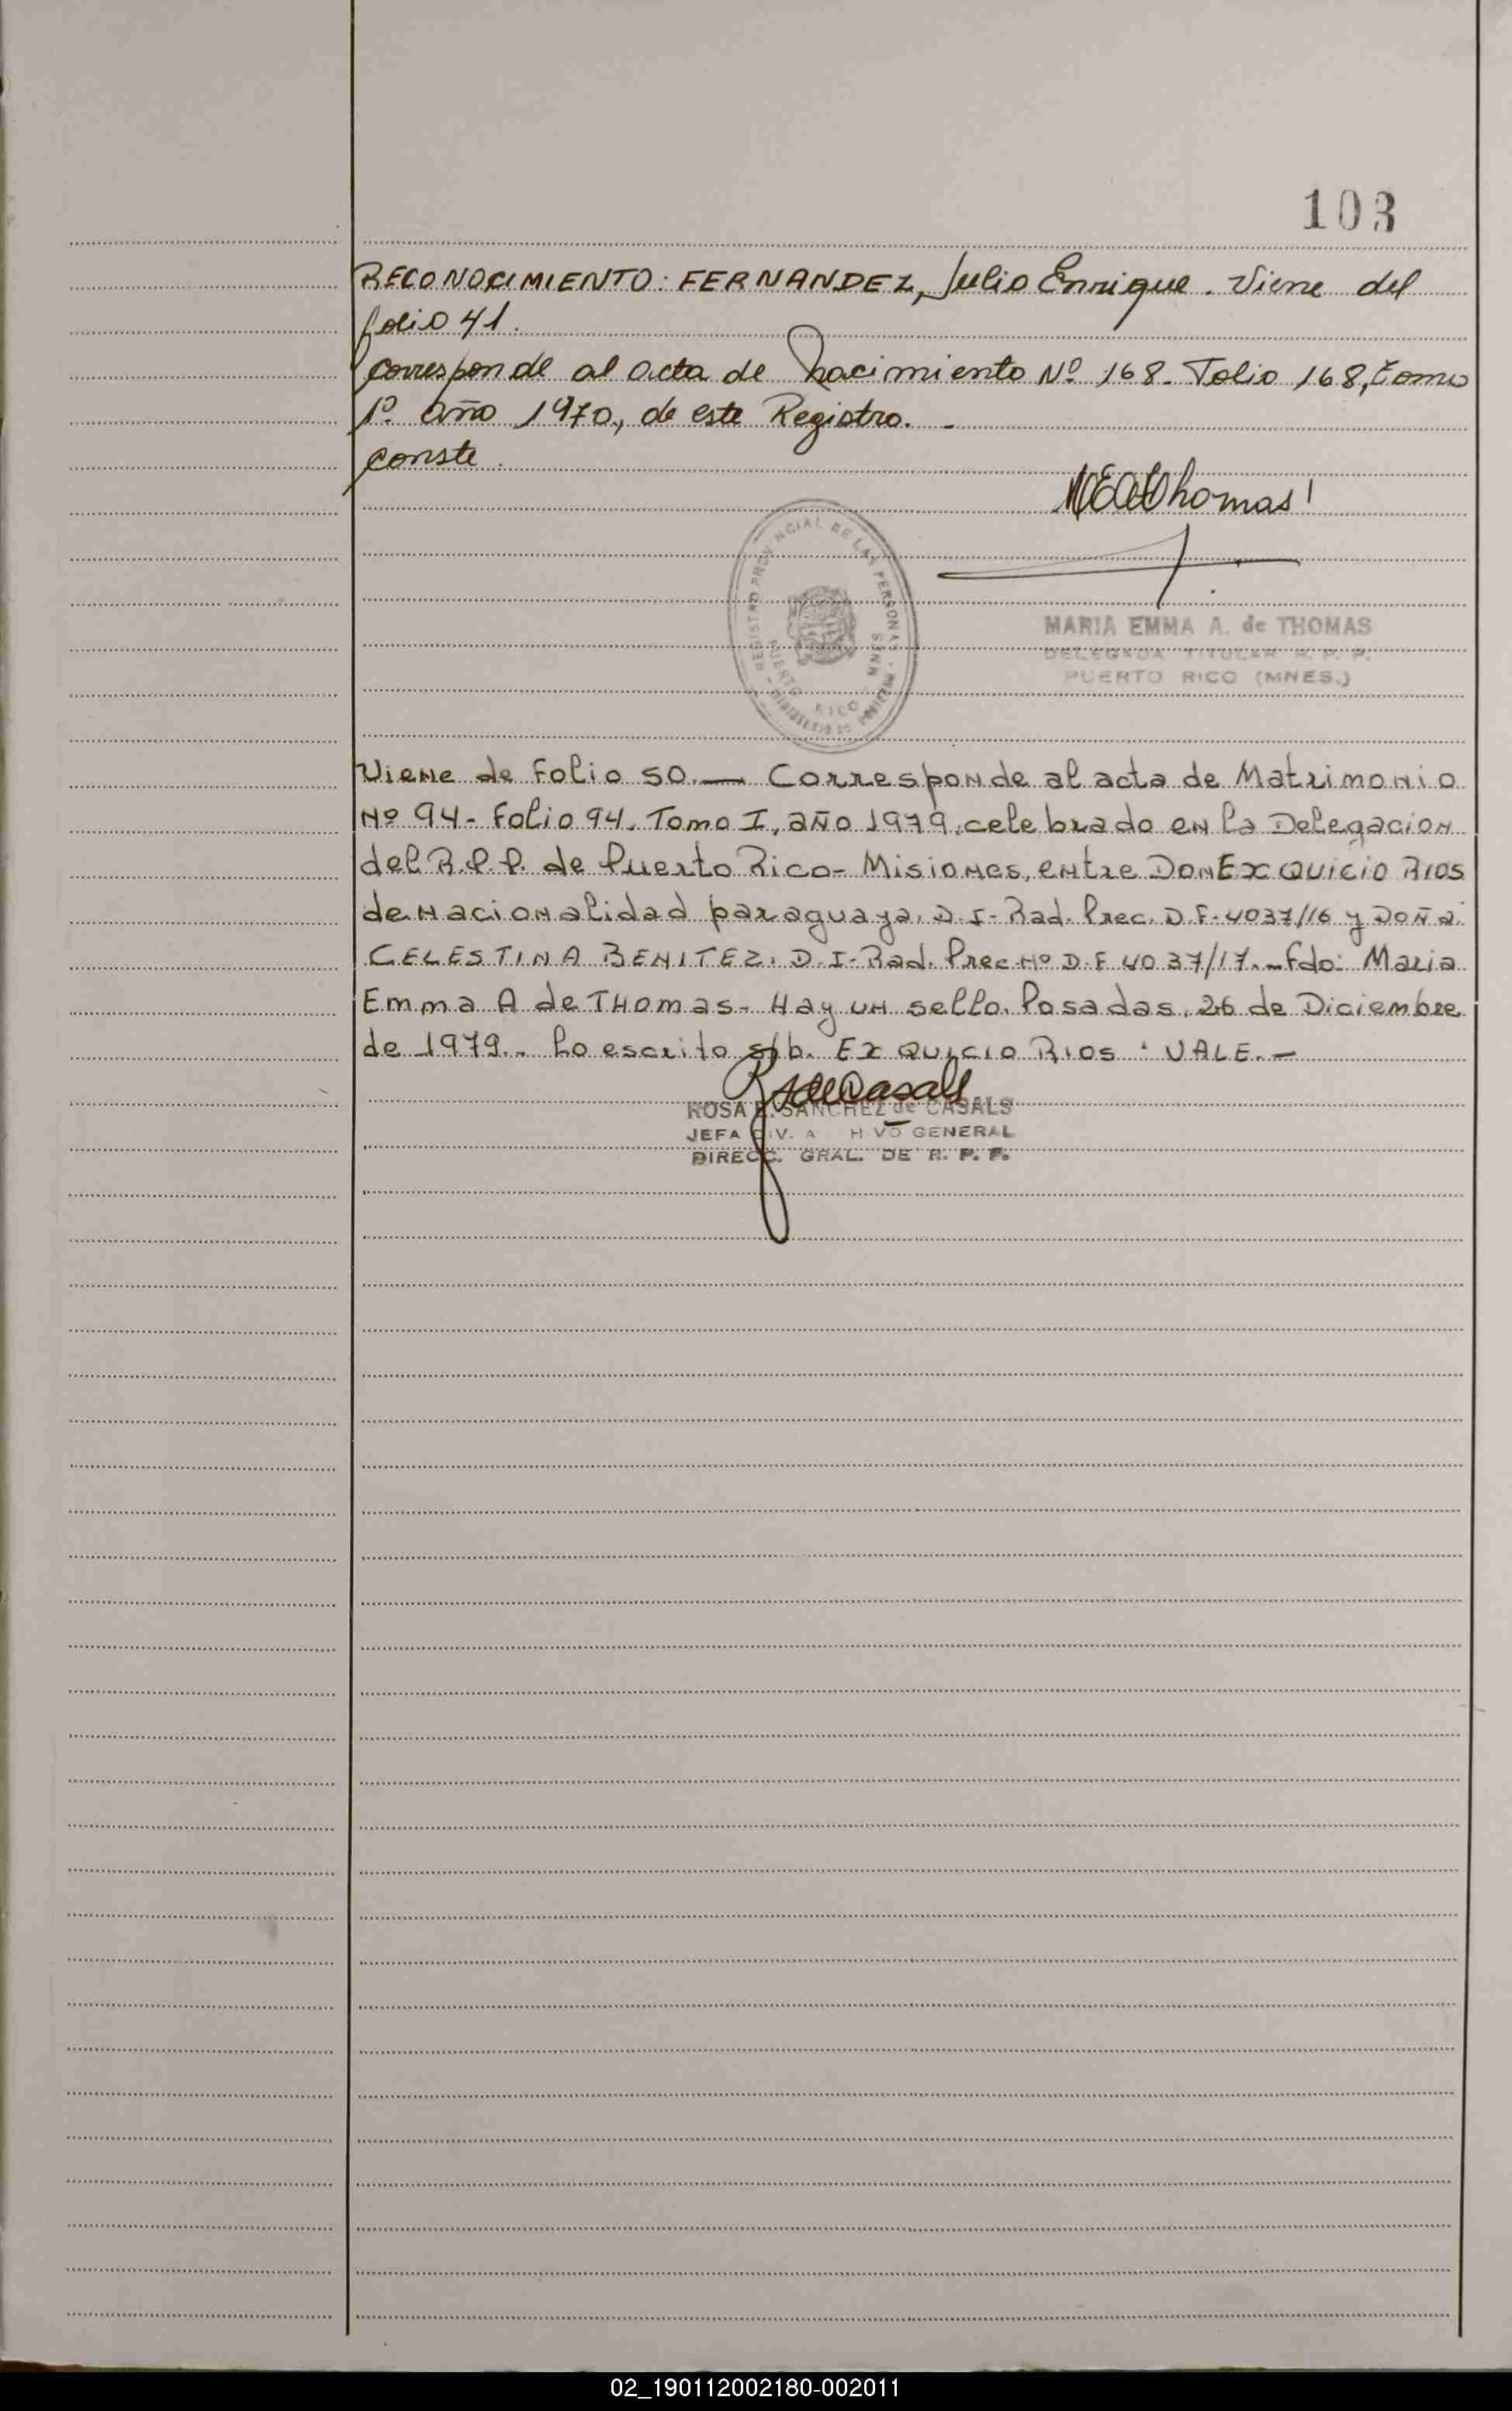 103
RECONOCIMIENTO: FERNANDEZ, Julio Enrique. Viene del
folio 41.
corresponde al acta de Nacimiento Nº 168. Folio 168, Tomo
1º Año 1970, de este Registro. -
conste.
MEAThomas
REGISTRO PROVINCIAL DE LAS PERSONAS
PUERTO RICO MNES
MARIA EMMA A. de THOMAS
DELEGADA TITULAR R. P. P.
PUERTO RICO (MNES.)
Viene de Folio 50.— Corresponde al acta de Matrimonio
Nº 94- Folio 94. Tomo I, año 1979, celebrado en la Delegacion
del R.P.P. de Puerto Rico- Misiones, entre Don EXQUICIO RIOS
de nacionalidad paraguaya. D.I- Rad. Prec. D.F-4037/16 y Doña
CELESTINA BENITEZ. D.I-Rad. Prec Nº D.F 4037/17.- Fdo: Maria
Emma A de THomas- Hay un sello. Posadas, 26 de Diciembre
de 1979.. Lo escrito s/b. EXQUICIO RIOS · VALE.—
RSdeCasals
ROSA E. SANCHEZ de CASALS
JEFA DIV. A HIVO GENERAL
DIRECC. GRAL. DE R. P. P.
02_190112002180-002011